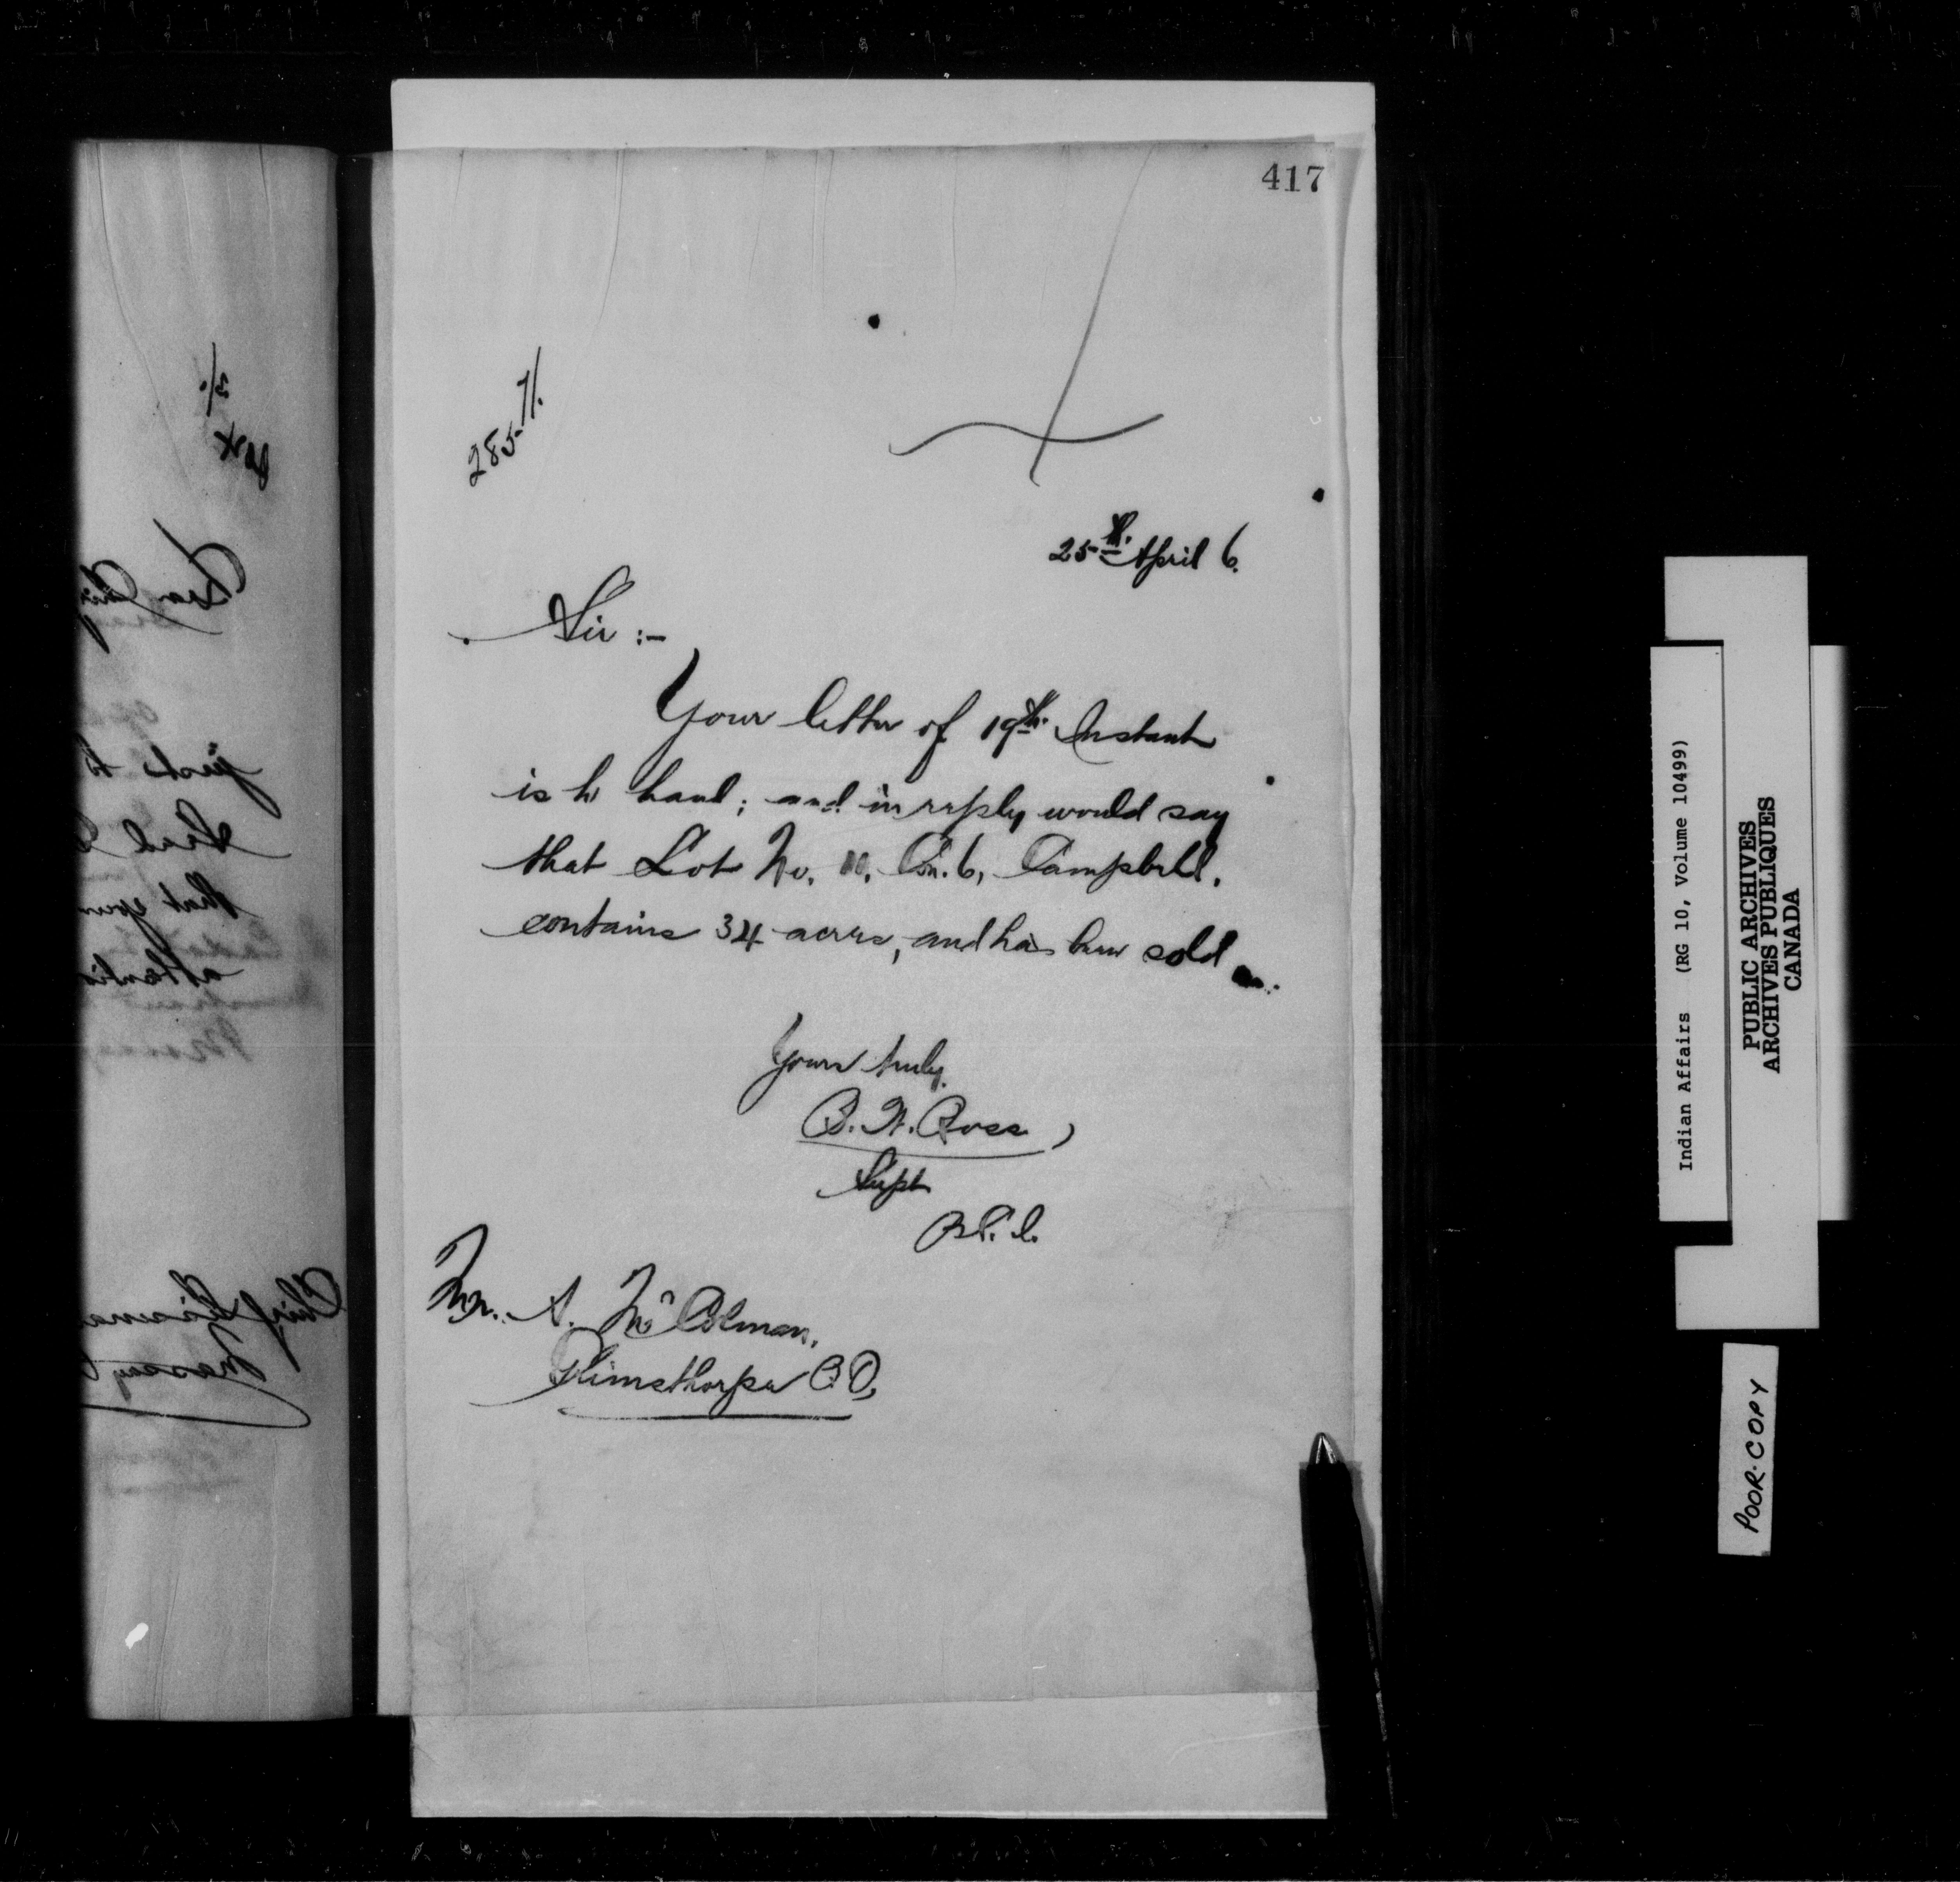 417
285-71.
25th. April 6.
Sir :-
Your letter of 19th. Instant
is to hand; and in reply would say
that Lot No. 11, Con. 6, Campbell,
contains 34 acres, and has been sold
Yours truly,
B. W. Ross,
Supt
Mr. A. McColman,
Grimsthorpe P.O,
just to
that your
attentio
Chief
Massey
Indian Affairs (RG 10, Volume 10499)
PUBLIC ARCHIVES
ARCHIVES PUBLIQUES
CANADA
POOR COPY